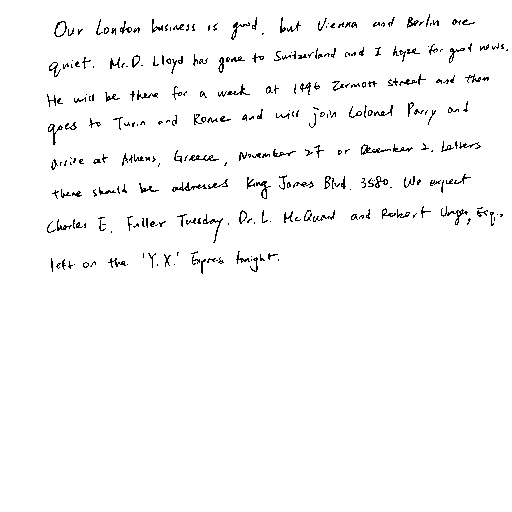 Our London business is good, but Vienna and Berlin are
quiet. Mr. D. Lloyd has gone to Switzerland and I hope for good news.
He will be there for a week at 1496 Zermott street and then
goes to Turin and Rome and will join Colonel Parry and
arrive at Athens, Greece, November 27 or December 2. Letters
there should be addressed King James Blvd. 3580. We expect
Charles E. Fuller Tuesday. Dr. L. McQuaid and Robert Unger, Esq.,
left on the 'Y.X.' Express tonight.